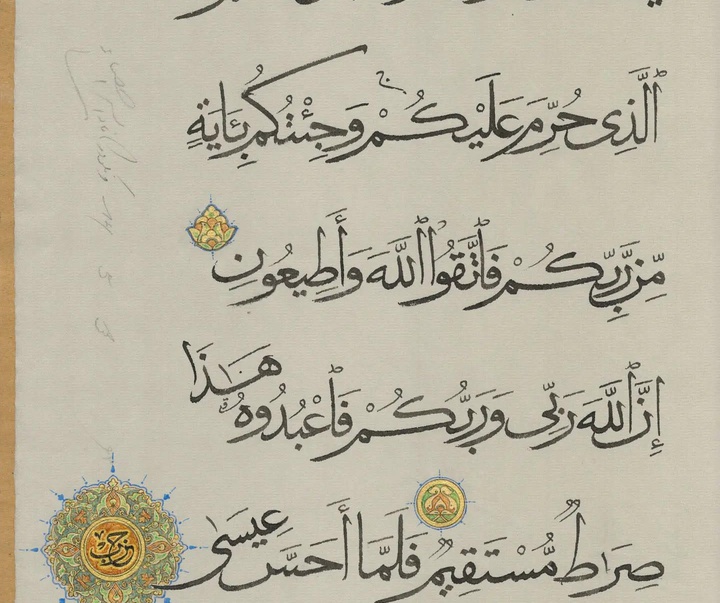 ٱلَّذِى حُرِّمَ عَلَيْكُمْ وَجِئْتُكُم بِـَٔايَةٍ
مِّن رَّبِّكُمْ فَٱتَّقُوا۟ ٱللَّهَ وَأَطِيعُونِ
إِنَّ ٱللَّهَ رَبِّى وَرَبُّكُمْ فَٱعْبُدُوهُ هَٰذَا
صِرَٰطٌ مُّسْتَقِيمٌ فَلَمَّا أَحَسَّ عِيسَى
حزب